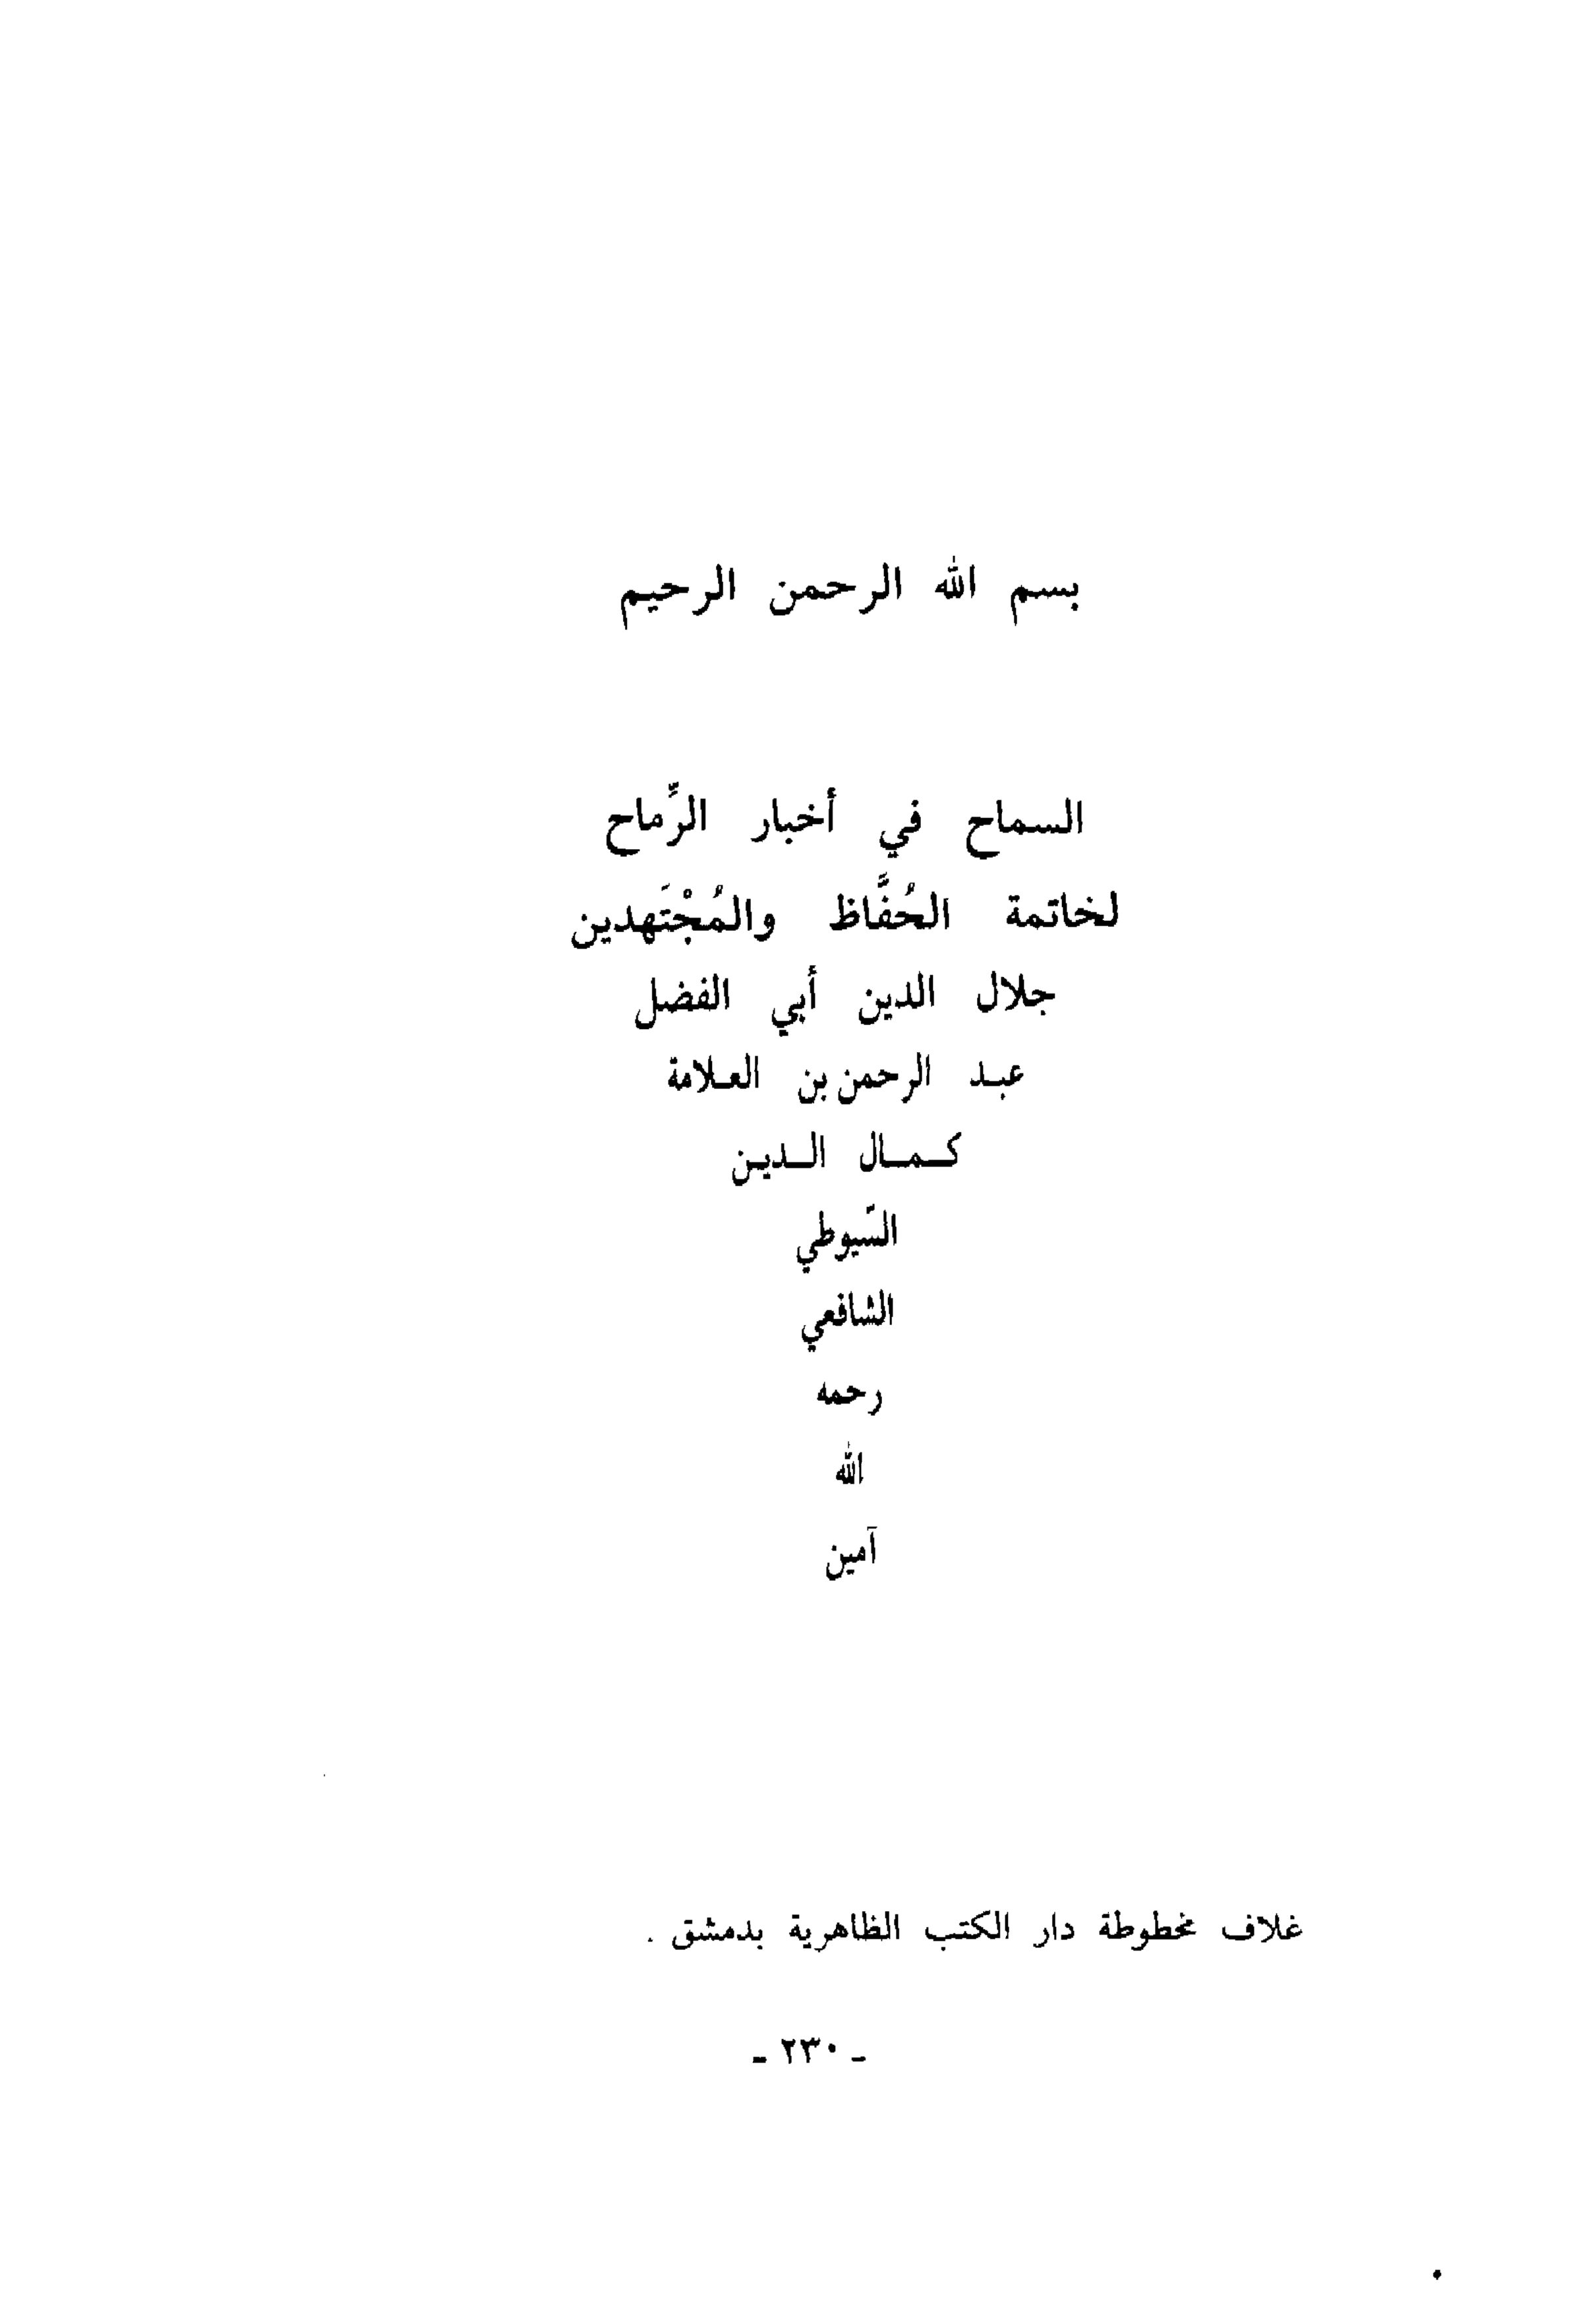 بسم الله الرحمن الرحيم
السماح في أخبار الرِّماح
لخاتمة الحُفَّاظ والمُجْتَهدين
جلال الدين أبي الفضل
عبـد الرحمن بن العـلامة
كـمـال الـديـن
السّيوطي
الشافعي
رحمه
الله
آمين
غلاف مخطوطة دار الكتب الظاهرية بدمشق .
- ٢٣٠ -